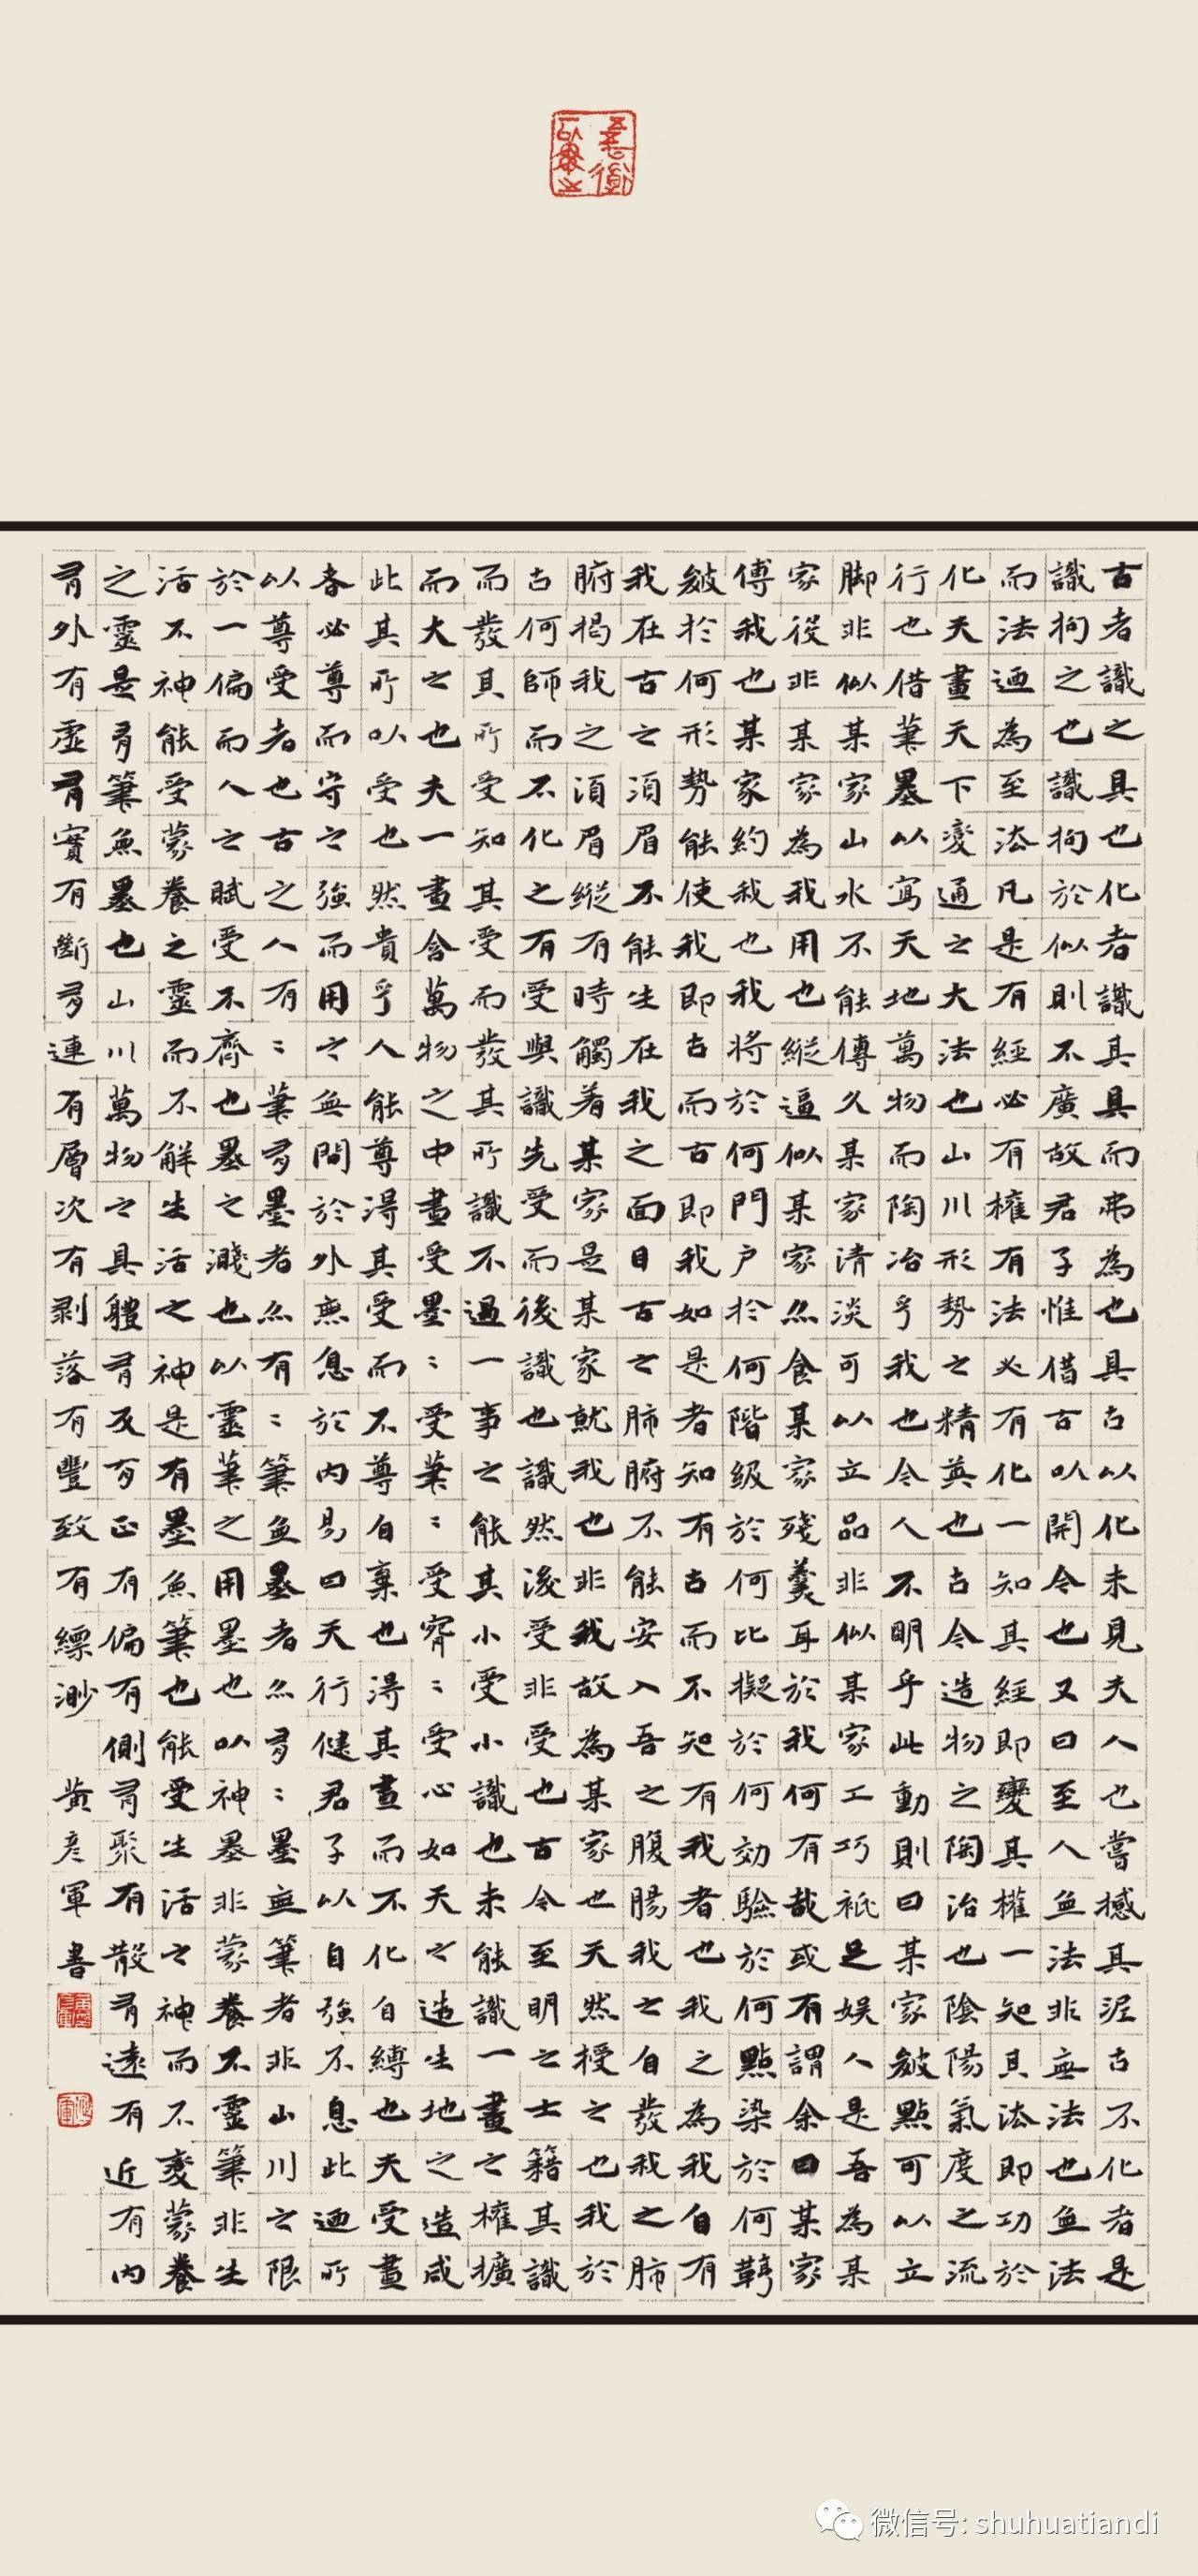 古者識之具也化者識其具而弗為也具古以化未見夫人也嘗憾其泥古不化者是
識拘之也識拘於似則不廣故君子惟借古以開今也又曰至人無法非無法也無法
而法迺為至法凡是有經必有權有法必有化一知其經即變其權一知其法即功於
化夫畫天下變通之大法也山川形勢之精英也古今造物之陶冶也陰陽氣度之流
行也借筆墨以寫天地萬物而陶冶乎我也今人不明乎此動則曰某家皴點可以立
脚非似某家山水不能傳久某家清淡可以立品非似某家工巧祇足娛人是吾為某
家役非某家為我用也縱逼似某家亦食某家殘羹耳於我何有哉或有謂余曰某家
傅我也某家約我也我將於何門戶於何階級於何比擬於何効驗於何點染於何鞟
皴於何形勢能使我即古而古即我如是者知有古而不知有我者也我之為我自有
我在古之須眉不能生在我之面目古之肺腑不能安入吾之腹腸我之自發我之肺
腑揭我之須眉縱有時觸着某家是某家就我也非我故為某家也天然授之也我於
古何師而不化之有受與識先受而後識也識然後受非受也古今至明之士籍其識
而發其所受知其受而發其所識不過一事之能其小受小識也未能識一畫之權擴
而大之也夫一畫含萬物之中畫受墨〻受筆〻受腕〻受心如天之造生地之造成
此其所以受也然貴乎人能尊得其受而不尊自棄也得其畫而不化自縛也夫受畫
者必尊而守之強而用之無間於外無息於內易曰天行健君子以自強不息此迺所
以尊受者也古之人有〻筆有墨者亦有〻筆無墨者亦有〻墨無筆者非山川之限
於一偏而人之賦受不齊也墨之濺也以靈筆之用墨也以神墨非蒙養不靈筆非生
活不神能受蒙養之靈而不解生活之神是有墨無筆也能受生活之神而不變蒙養
之靈是有筆無墨也山川萬物之具體有反有正有偏有側有聚有散有遠有近有內
有外有虛有實有斷有連有層次有剥落有豐致有縹渺 黃彦軍書
微信号: shuhuatiandi